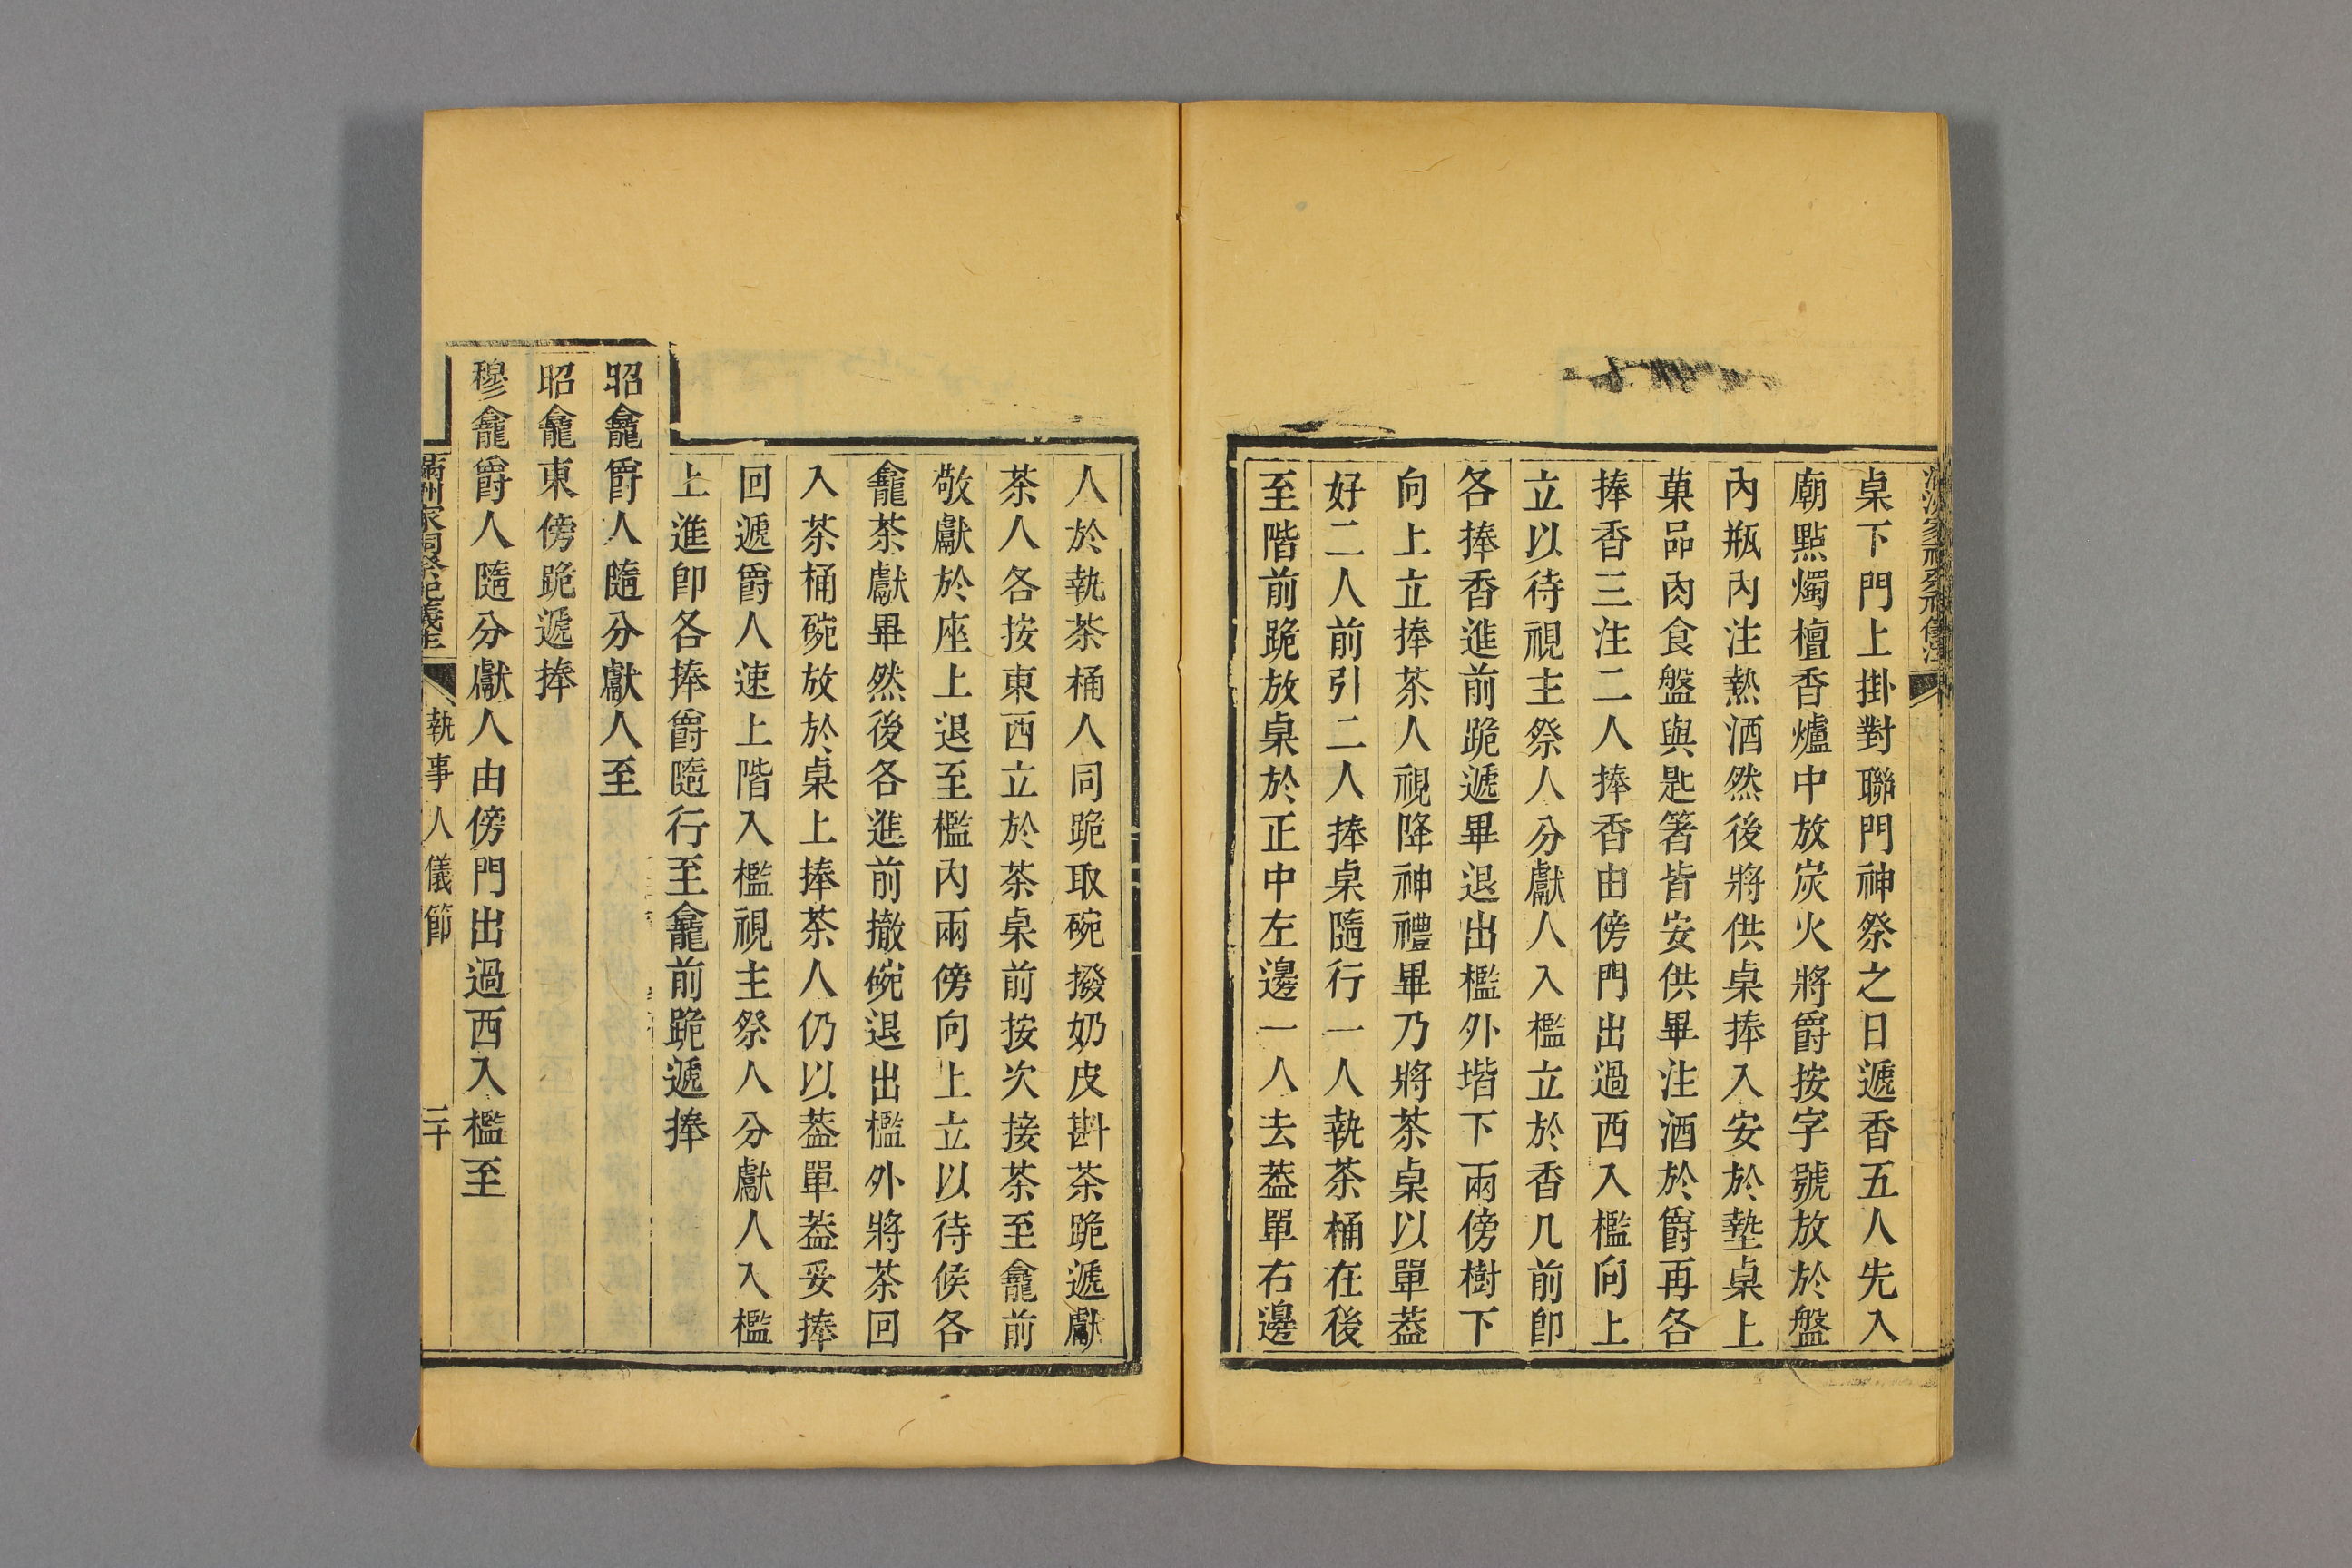 桌下門上掛對聯門神祭之日遞香五人先入
廟㸃燭檀香爐中放炭火將爵按字號放於盤
內瓶內注熱酒然後將供桌捧入安於墊桌上
菓品肉食盤與匙箸皆安供畢注酒於爵再各
捧香三注二人捧香由傍門出過西入檻向上
立以待視主祭人分獻人入檻立於香几前卽
各捧香進前跪遞畢退出檻外堦下兩傍樹下
向上立捧茶人視降神禮畢乃將茶桌以單葢
好二人前引二人捧桌隨行一人執茶桶在後
至階前跪放桌於正中左邊一人去葢單右邊
人於執茶桶人同跪取碗撥奶皮斟茶跪遞獻
茶人各按東西立於茶桌前按次接茶至龕前
敬獻於座上退至檻內兩傍向上立以待候各
龕茶獻畢然後各進前撤碗退出檻外將茶回
入茶桶碗放於桌上捧茶人仍以葢單葢妥捧
回遞爵人速上階入檻視主祭人分獻人入檻
上進卽各捧爵隨行至龕前跪遞捧
昭龕爵人隨分獻人至
昭龕東傍跪遞捧
穆龕爵人隨分獻人由傍門出過西入檻至
滿洲家祠祭祀儀注
執事人儀節
二十